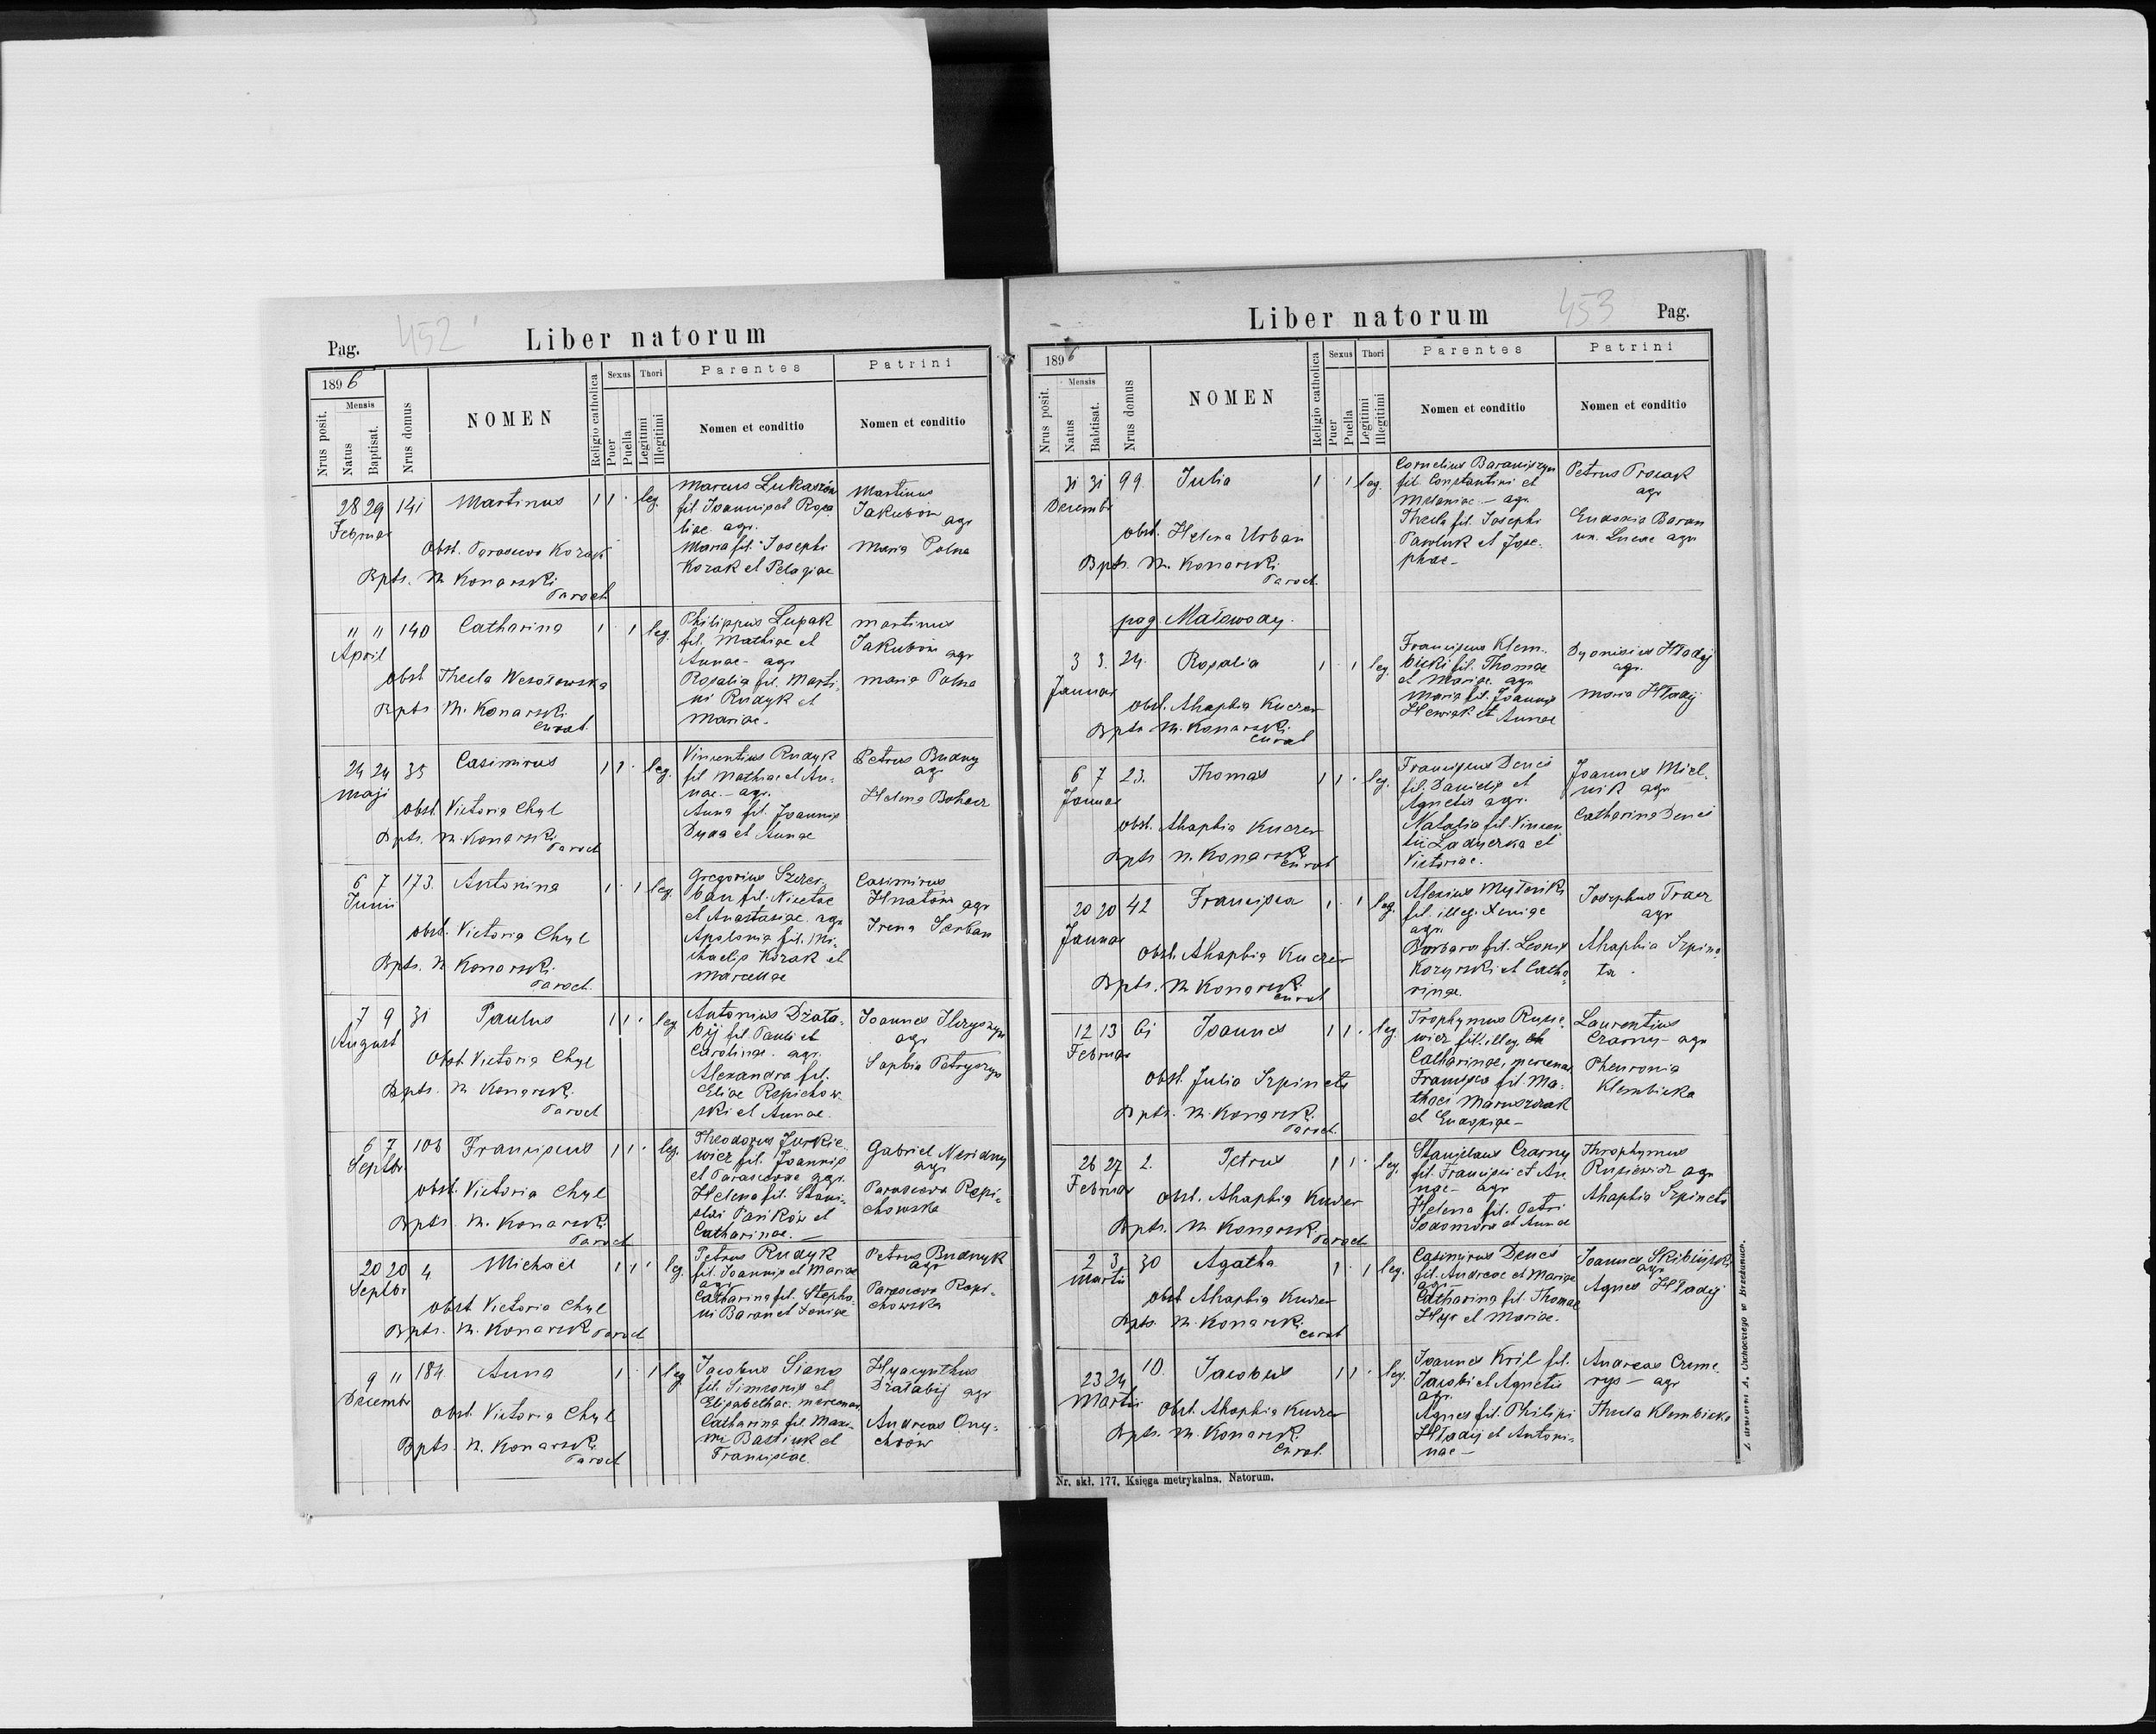 452
Pag.
Liber natorum
1896
Nrus posit.
Mensis
Natus
Baptisat.
Nrus domus
NOMEN
Religio catholica
Sexus
Puer
Puella
Thori
Legitimi
Illegitimi
Parentes
Nomen et conditio
Patrini
Nomen et conditio
28 29 141 Martinus 1 1 · leg.
Februar
Obst. Parasceva Kozak
Bpts. M. Konarski
Paroch.
Marcus Lukasów
fil. Joannis et Rosa
liae agr.
Maria fil. Josephi
Kozak et Pelagiae
Martinus
Jakubów agr
Maria Polna
11 11 140 Catharina 1 · 1 leg.
April
obst Thecla Wesołowska
Bpts M. Konarski
curat.
Philippus Lupak
fil. Mathiae et
Annae - agr
Rosalia fil. Marti-
ni Rudyk et
Mariae.
Martinus
Jakubów agr
Maria Polna
24 24 35 Casimirus 1 1 · leg.
Maji
obst. Victoria Chyl
Bpts. M. Konarski
Paroch
Vincentius Rudyk
fil Mathiae et An-
nae - agr.
Anna fil. Joannis
Duda et Annae
Petrus Budny
agr
Helena Bohacz
6 7 173. Antonina 1 · 1 leg.
Junii
obst. Victoria Chyl
Bpts. M Konarski
Paroch.
Gregorius Szczer-
ban fil. Nicetae
et Anastasiae. agr
Apolonia fil. Mi-
chaelis Kozak et
Marcellae
Casimirus
Hnatów agr
Irena Serban
7 9 31 Paulus 1 1 · leg
August
Obst Victoria Chyl
Bpts. M. Konarski
Paroch
Antonius Działa-
bij fil. Pauli et
Carolinae. agr.
Alexandra fil.
Eliae Repichow
ski et Annae.
Joannes Ilczyszyn
agr
Sophia Petryszyn
6 7 108 Franciscus 1 1 · leg.
Septbr
obst. Victoria Chyl
Bpts. M. Konarski
Paroch
Theodorus Jurkie
wicz fil. Joannis
et Parascevae agr.
Helena fil. Stani-
slai Pańków et
Catharinae. —
Gabriel
agr
Parasceva Repi-
chowska
20 20 4 Michael 1 1 · leg.
Septbr
obst Victoria Chyl
Bpts. M. Konarski Paroch
Petrus Rudyk
fil. Joannis et Mariae
agr
Catharina fil. Stepha-
ni Baran et Xeniae
Petrus Budnyk
agr
Parasceva Repi-
chowska
9 11 184 Anna 1 · 1 leg
Decembr
obst. Victoria Chyl
Bpts. M. Konarski
Paroch
Jacobus Siano
fil. Simeonis et
Elisabethae. mercenar.
Catharina fil. Maxi-
mi Bastiuk et
Franciscae.
Hyacynthus
Działabij agr
Andreas Ony-
chrów
Liber natorum
453
Pag.
1896
Nrus posit.
Mensis
Natus
Babtisat.
Nrus domus
NOMEN
Religio catholica
Sexus
Puer
Puella
Thori
Legitimi
Illegitimi
Parentes
Nomen et conditio
Patrini
Nomen et conditio
31 31 99 Julia 1 · 1 leg.
Decembr
obst. Helena Urban
Bpts. M. Konarski
Paroch.
Cornelius Baraniszyn
fil. Constantini et
Melaniae - agr.
Thecla fil. Josephi
Pawluk et Jose-
phae -
Petrus Procak
agr
Eudoxia Baran
ux. Lucae agr
pag Małowody.
3 3. 24. Rosalia 1 · 1 leg.
Januar
obst. Ahaphia Kuczer
Bpts M. Konarski
curat
Franciscus Klem-
bicki fil. Thomae
et Mariae. agr
Maria fil. Joannis
Hewiak et Annae
Dyonisius Hładij
agr.
Maria Hładij
6 7 23. Thomas 1 1 · leg.
Januar
obst. Ahaphia Kuczer
Bpts M. Konarski
curat
Franciscus Denes
fil. Danielis et
Agnetis agr.
Natalia fil. Vincen
tii Ladyczka et
Victoriae.
Joannes Miel-
nik agr
Catharina Denes
20 20 42 Francisca 1 · 1 leg.
Januar
Obst. Ahaphia Kuczer
Bpts. M Konarski
curat
Alexius
fil. illeg. Xeniae
agr.
Barbara fil. Leonis
Kozyrski et Catha
rinae.
Josephus Tracz
agr
Ahaphia Szpine
ta.
12 13 61 Joannes 1 1 · leg.
Februar
obst. Julia Szpineta
Bpts. M. Konarski.
Paroch.
Trophymus Rusie-
wicz fil. illeg.
Catharinae, mercenar
Francisca fil. Ma-
thaei Maruszczak
et Eudoxiae -
Laurentius
Czarny - agr
Phevronia
Klembicka
26 27 2. Petrus 1 1 · leg.
Februar
obst. Ahaphia Kuczer
Bpts. M Konarski.
Paroch
Stanislaus Czarny
fil. Francisci et An
nae - agr
Helena fil. Petri
Sodomora et Annae
Throphymus
Rusiewicz agr
Ahaphia Szpineta
2 3 30 Agatha 1 · 1 leg.
Martii
obst Ahaphia Kuczer
Bpts. M. Konarski.
curat
Casimirus Denes
fil. Andreae et Mariae
agr -
Catharina fil. Thomae
Hyr et Mariae.
Joannes Skibiński
agr
Agnes Hładij
23 24 10. Jacobus 1 1 · leg.
Martii
Obst. Ahaphia Kuczer
Bpts. M. Konarski.
Curat.
Joannes Kril fil.
Jacobi et Agnetis
agr.
Agnes fil. Philipi
Hładij et Antoni-
nae -
Andreas
agr
Thecla Klembicka
Nr. skł. 177. Księga metrykalna. Natorum.